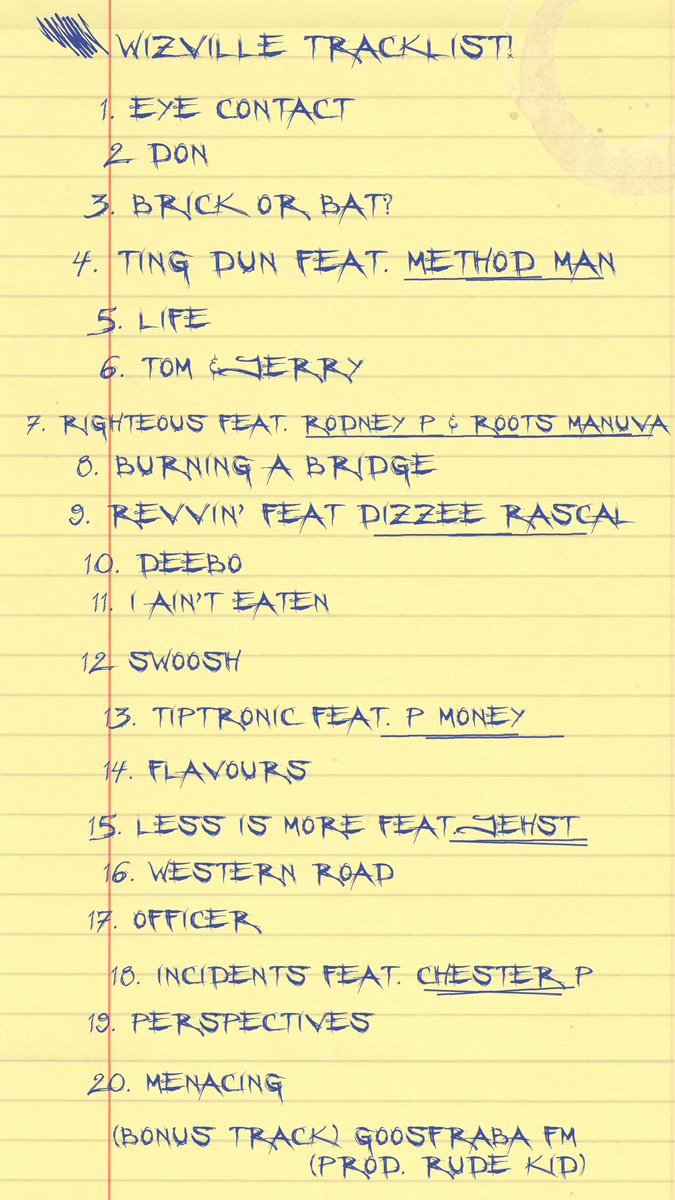 WIZVILLE TRACKLIST!
1. EYE CONTACT
2 DON
3. BRICK OR BAT?
4. TING DUN FEAT. METHOD MAN
5. LIFE
6. TOM & JERRY
7. RIGHTEOUS FEAT. RODNEY P & ROOTS MANUVA
8. BURNING A BRIDGE
9. REVVIN' FEAT DIZZEE RASCAL
10. DEEBO
11. I AIN'T EATEN
12 SWOOSH
13. TIPTRONIC FEAT. P MONEY
14. FLAVOURS
15. LESS IS MORE FEAT. JEHST
16. WESTERN ROAD
17. OFFICER
18. INCIDENTS FEAT. CHESTER P
19. PERSPECTIVES
20. MENACING
(BONUS TRACK) GOOSFRABA FM
(PROD. RUDE KID)